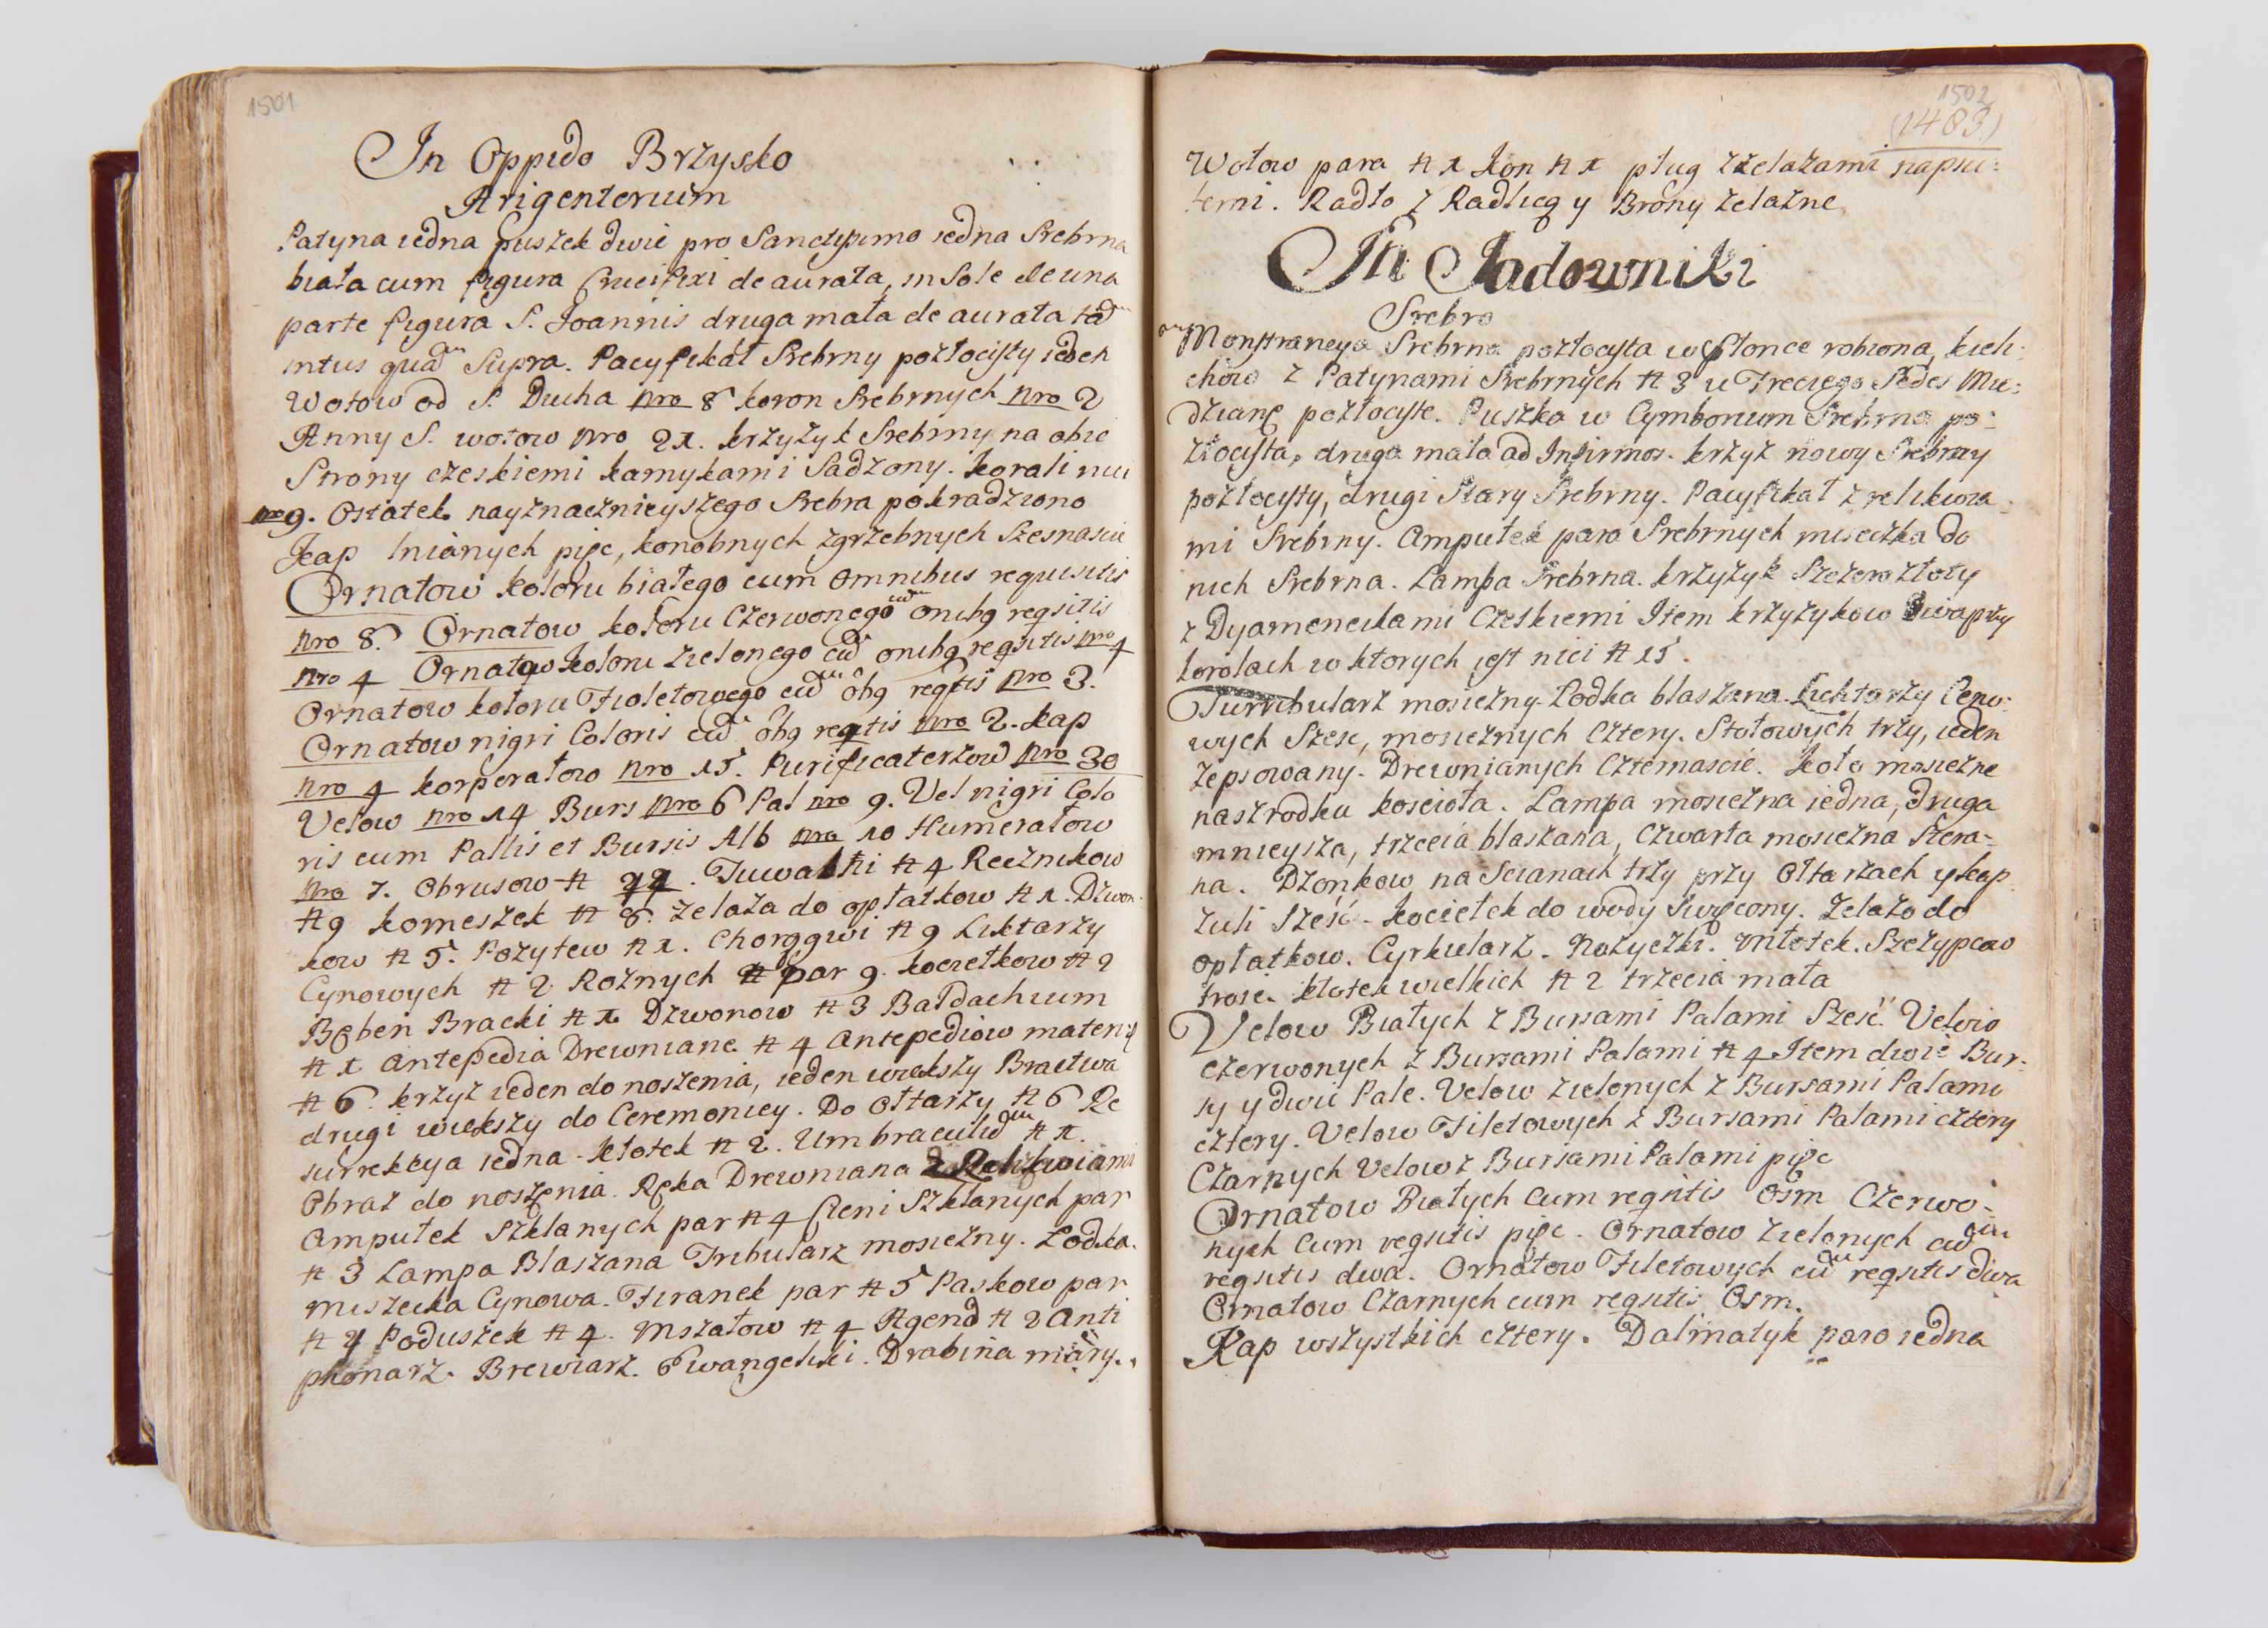 1501
In Oppido Brzysko
Arigenterium
Patyna iedna puszek dwie pro Sanctissimo iedna Srebrna
biała cum figura Crucifixi de aurata, in Sole de una
parte figura S. Joannis druga mała de aurata tad
intus quad Supra. Pacyfikał Srebrny pozłocisty ieden
Wotow od S. Ducha nro 8 koron Srebrnych nro 2
Anny S. wotow nro 21. krzyżyk Srebrny na obie
Strony czeskiemi kamykami Sadzony. korali nici
nro 9. Ostatek nayznacznieyszego Srebra pokradziono
Kap lnianych pięc, konobnych zgrzebnych Szesnascie
Ornatow koloru białego cum omnibus requisitis
nro 8. Ornatow koloru Czerwonego cum onibg reqsitis
nro 4 Ornatow koloru zielonego cũ onibg reqsitis nro 4
Ornatow koloru Fioletowego cũ õbg reqtis nro 3.
Ornatow nigri Coloris cũ õbg reqtis nro 2. kap
nro 4 korperałow nro 15. Purificaterzow nro 30
Velow nro 14 Burs nro 6 Pal nro 9. Vel nigri Colo
ris cum Pallis et Bursis Alb nro 10 Humerałow
nro 7. Obrusow # 22. Tuwalni # 4 Recznikow
# 9 komeszek # 8. żelaza do opłatkow # 1. Dzwon
kow # 5. Pozytew # 1. Chorągwi # 9 Liktarzy
Cynowych # 2 Rożnych # par 9. kociełkow # 2
Bęben Bracki # 1 Dzwonow # 3 Bałdachium
# 1 Antepedia Drewniane # 4 Antepediow matery
# 6. krzyż ieden do noszenia, ieden wiekszy Bractwa
drugi wiekszy do Ceremoniey. Do Ołtarzy # 6 Re
surrekcya iedna. kłotek # 2. Umbraculũ # 1.
Obraz do noszenia. Ręka Drewniana z Relikwiami
Ampułek Szklanych par # 4 Cieni Szklanych par
# 3 Lampa Blaszana Tribularz mosiezny. Łodka.
miszecka Cynowa. Firanek par # 5 Paskow par
# 4 Poduszek # 4. Mszałow # 4 Agend # 2 Anti
phonarz. Brewiarz. Ewangeliki. Drabina máry.
1502
(1483)
Wołow para # 1 kon # 1 pług z żelazami napsu:
temi. Radło z Radlicą y Brony żelazne
In Jadowniki
Srebro
Monstrancya Srebrna pozłocysta w Słonce robiona, kieli:
chow z Patynami Srebrnych # 3 u Trzeciego Pedes Mie:
dziane pozłocyste. Puszka w Cymborium Srebrna po:
złocysta, druga mała ad Infirmos. krzyż nowy Srebrny
pozłocysty, drugi Stary Srebrny. Pacyfikał z relikwia
mi Srebrny. Ampułek para Srebrnych miseczka do
nich Srebrna. Lampa Srebrna. krzyżyk Szczero złoty
z Dyamencikami Czeskiemi Item krzyżykow dwa przy
korolach w ktorych iest nici # 15.
Turribularz mosiezny. Łodka blaszana. Lichtarzy Ceno:
wych Szesc, mosieznych Cztery. Stołowych trzy, ieden
zepsowany. Drewnianych Czternascie. Koło mosiezne
naszrodku koscioła. Lampa mosiezna iedna, druga
mnieysza, trzecia blaszana, Czwarta mosiezna Szera=
na. Dzonkow na Scianach trzy przy Ołtarzach y kap
zuli Szesć. kociełek do wody Swięcony. Zelazo do
opłatkow. Cyrkularz. Nożyczki. Młotek. Szczypcow
troie. kłotek wielkich # 2 trzecia mała
Velow Białych z Bursami Palami Szesć. Velow
czerwonych z Bursami Palami # 4 Item dwie Bur:
sy y dwie Pale. Velow zielonych z Bursami Palami
cztery. Velow Filetowych z Bursami Palami cztery
Czarnych Velow z Bursami Palami pięc
Ornatow Białych Cum reqsitis Osm Czerwo=
nych Cum reqsitis pięc. Ornatow zielonych cũ
reqsitis dwa. Ornatow Filetowych cũ reqsitis dwa
Ornatow Czarnych cum reqsitis Osm.
Kap wszystkich cztery. Dalmatyk para iedna